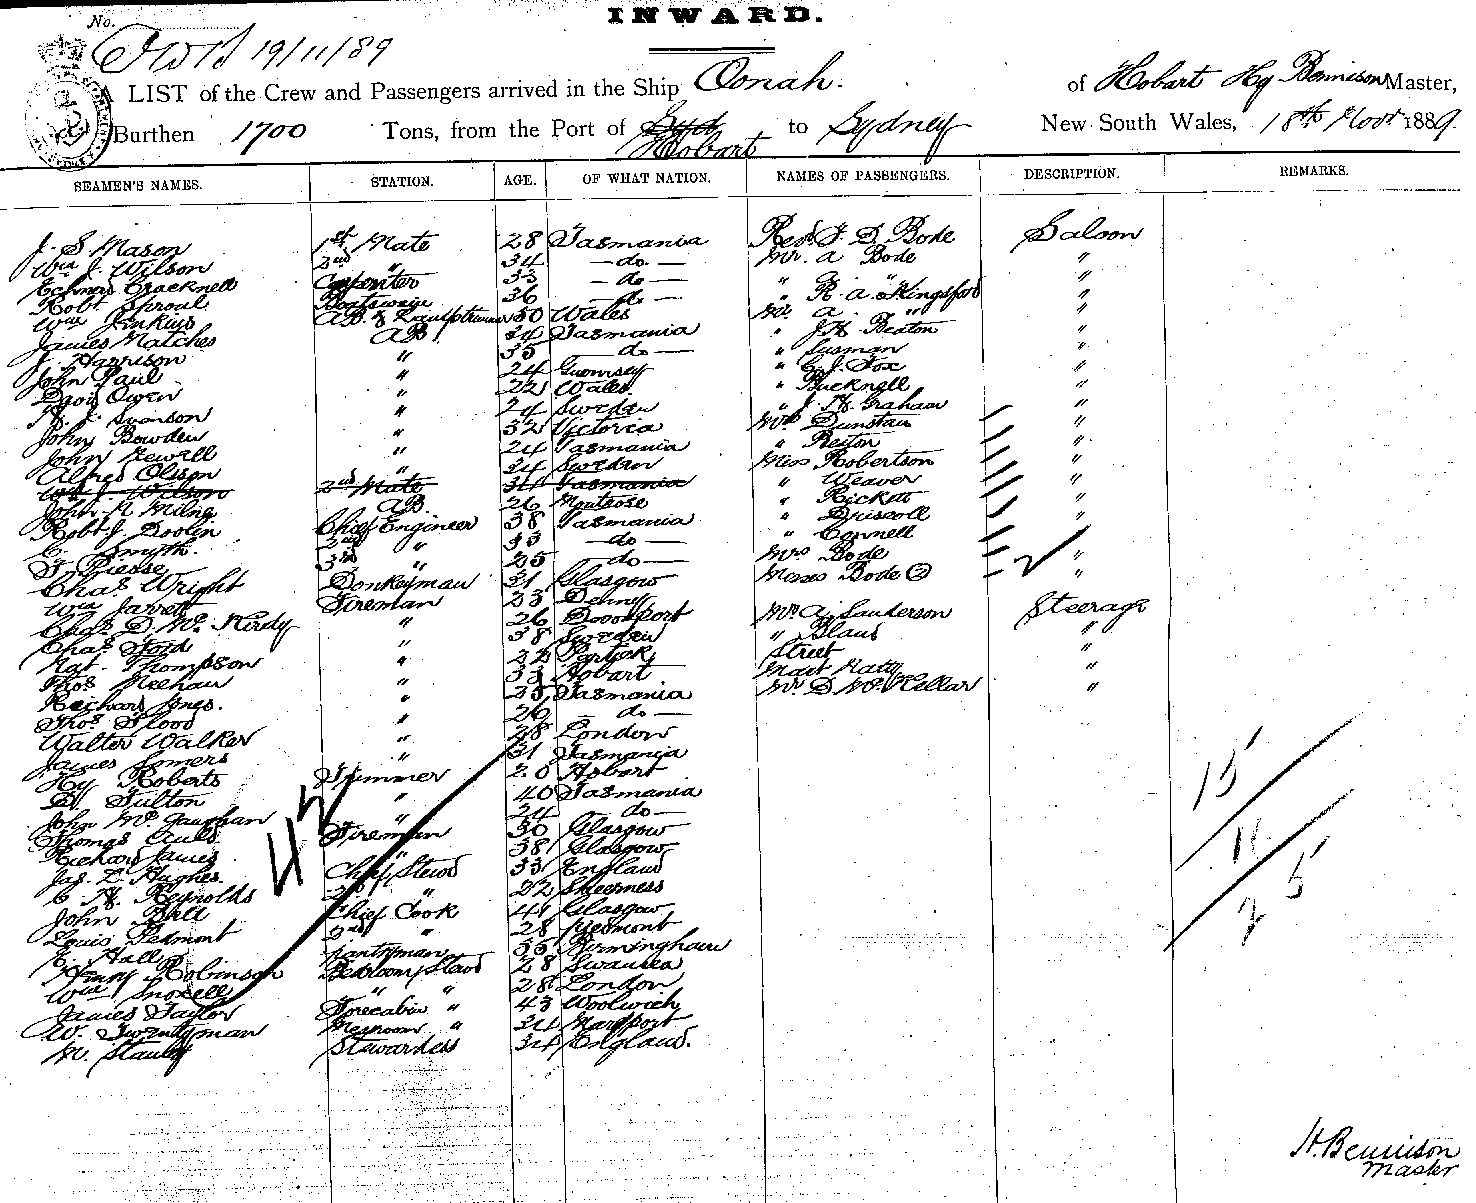 INWARD.
No.
19/11/89
A LIST of the Crew and Passengers arrived in the Ship Oonah. of Hobart Hy Bennison Master,
Burthen 1700 Tons, from the Port of Hobart to Sydney New South Wales, 18th Novr 1889.
SEAMEN'S NAMES. STATION. AGE. OF WHAT NATION. NAMES OF PASSENGERS. DESCRIPTION. REMARKS.
J. S Mason 1st Mate 28 Tasmania Revd F. D. Bode Saloon
Wm J. Wilson 2nd " 34 - do - Mr. A Bode "
Cracknell Carpenter 33 - do - " R. A. Kingsford "
Robt Sproul Boatswain 36 - do - Mr. A. " "
Wm Jenkins A.B. & Lamptrimmer 50 Wales " J. H. Beaton "
James Matches AB 34 Tasmania " Susman "
J. Harrison " 35 - do - " C. J. Fox "
John Paul " 24 Guernsey " Bucknell "
David Owen " 22 Wales " J. H. Graham "
Swanson " 24 Sweden Mrs Dunstan "
John Bowden " 32 Victoria " Reiton "
John Jewell " 24 Tasmania Miss Robertson "
Alfred Olsson " 34 Sweden " Weaver "
Wm J. Wilson 2nd Mate 34 Tasmania " Ricketts "
John R Milne AB. 26 Montrose " Driscoll "
Robt J. Doolin Chief Engineer 38 Tasmania " Connell "
C. Smyth. 2nd " 33 - do - Mrs Bode "
F. Piesse 3rd " 25 - do - Misses Bode 2 "
Chas Wright Donkeyman 31 Glasgow
Wm Jarrett Fireman 23 Mr. A. Sanderson Steerage
Chas D. McKirdy " 26 Devonport " Bland "
Chas Ford " 38 Sweden Street "
Nat. Thompson " 22 Partick "
Thos Meehan " 33 Hobart Mr D McKellar "
Richard Jones. " 25 Tasmania
Thos Flood " 26 - do -
Walter Walker " 28 London
James Somers " 31 Tasmania
Hy Roberts Trimmer 20 Hobart
Fulton " 40 Tasmania
John McGaughan " 24 - do -
Thomas Auld Fireman 30 Glasgow
Richard James " 38 Glasgow
Jas. E Hughes. Chief Stewd 33 England
C H. Reynolds 2nd " 22 Sheerness
John Bell Chief Cook 41 Glasgow
Louis Pedmont 2nd " 28 Piedmont
Hall Pantryman 35 Birmingham
Henry Robinson Bedroom Stewd 28 Swansea
Wm Snoxell " " 28 London
James Taylor Forecabin " 43 Woolwich
W. Twentyman Messroom " 34 Maryport
M. Stanley Stewardess 34 England.
42
15
11
5
2
H. Bennison
Master